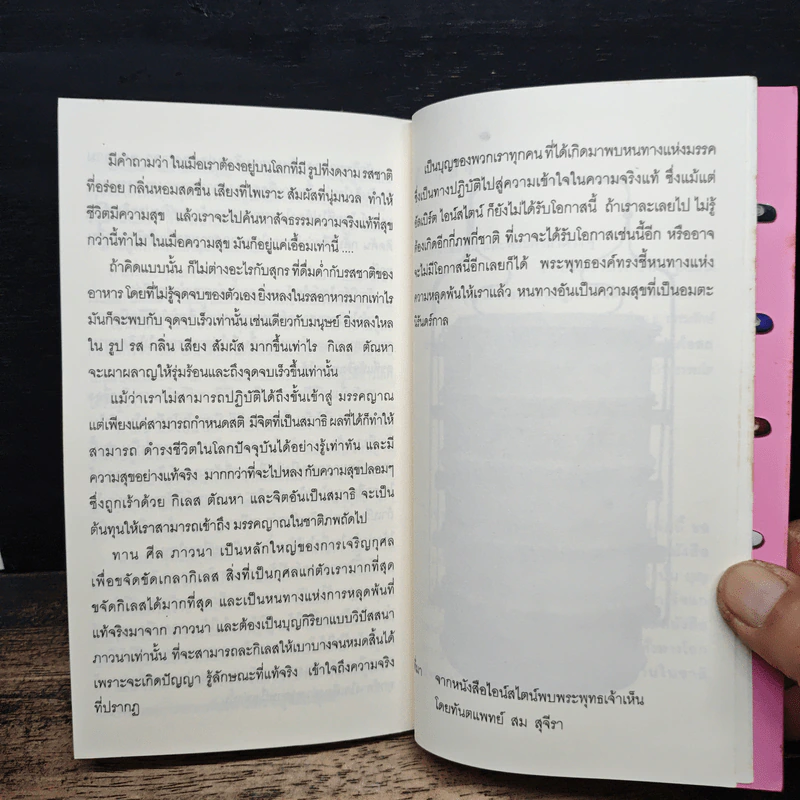 มีคำถามว่า ในเมื่อเราต้องอยู่บนโลกที่มี รูปที่งดงาม รสชาติ
ที่อร่อย กลิ่นหอมสดชื่น เสียงที่ไพเราะ สัมผัสที่นุ่มนวล ทำให้
ชีวิตมีความสุข แล้วเราจะไปค้นหาสัจธรรมความจริงแท้ที่สุข
กว่านี้ทำไม ในเมื่อความสุข มันก็อยู่แค่เอื้อมเท่านี้ ....
ถ้าคิดแบบนั้น ก็ไม่ต่างอะไรกับสุกร ที่ดื่มด่ำกับรสชาติของ
อาหาร โดยที่ไม่รู้จุดจบของตัวเอง ยิ่งหลงในรสอาหารมากเท่าไร
มันก็จะพบกับ จุดจบเร็วเท่านั้น เช่นเดียวกับมนุษย์ ยิ่งหลงใหล
ใน รูป รส กลิ่น เสียง สัมผัส มากขึ้นเท่าไร กิเลส ตัณหา
จะเผาผลาญให้รุ่มร้อนและถึงจุดจบเร็วขึ้นเท่านั้น
แม้ว่าเราไม่สามารถปฏิบัติได้ถึงขั้นเข้าสู่ มรรคญาณ
แต่เพียงแค่สามารถกำหนดสติ มีจิตที่เป็นสมาธิ ผลที่ได้ก็ทำให้
สามารถ ดำรงชีวิตในโลกปัจจุบันได้อย่างรู้เท่าทัน และมี
ความสุขอย่างแท้จริง มากกว่าที่จะไปหลง กับความสุขปลอมๆ
ซึ่งถูกเร้าด้วย กิเลส ตัณหา และจิตอันเป็นสมาธิ จะเป็น
ต้นทุนให้เราสามารถเข้าถึง มรรคญาณในชาติภพถัดไป
ทาน ศีล ภาวนา เป็นหลักใหญ่ของการเจริญกุศล
เพื่อขจัดขัดเกลากิเลส สิ่งที่เป็นกุศลแก่ตัวเรามากที่สุด
ขจัดกิเลสได้มากที่สุด และเป็นหนทางแห่งการหลุดพ้นที่
แท้จริงมาจาก ภาวนา และต้องเป็นบุญกิริยาแบบวิปัสสนา
ภาวนาเท่านั้น ที่จะสามารถละกิเลสให้เบาบางจนหมดสิ้นได้
เพราะจะเกิดปัญญา รู้ลักษณะที่แท้จริง เข้าใจถึงความจริง
ที่ปรากฏ
เป็นบุญของพวกเราทุกคน ที่ได้เกิดมาพบหนทางแห่งมรรค
ซึ่งเป็นทางปฏิบัติไปสู่ความเข้าใจในความจริงแท้ ซึ่งแม้แต่
อัลเบิร์ต ไอน์สไตน์ ก็ยังไม่ได้รับโอกาสนี้ ถ้าเราละเลยไป ไม่รู้
ต้องเกิดอีกกี่ภพกี่ชาติ ที่เราจะได้รับโอกาสเช่นนี้อีก หรืออาจ
จะไม่มีโอกาสนี้อีกเลยก็ได้ พระพุทธองค์ทรงชี้หนทางแห่ง
ความหลุดพ้นให้เราแล้ว หนทางอันเป็นความสุขที่เป็นอมตะ
นิรันดร์กาล
จากหนังสือไอน์สไตน์พบพระพุทธเจ้าเห็น
โดยทันตแพทย์ สม สุจีรา